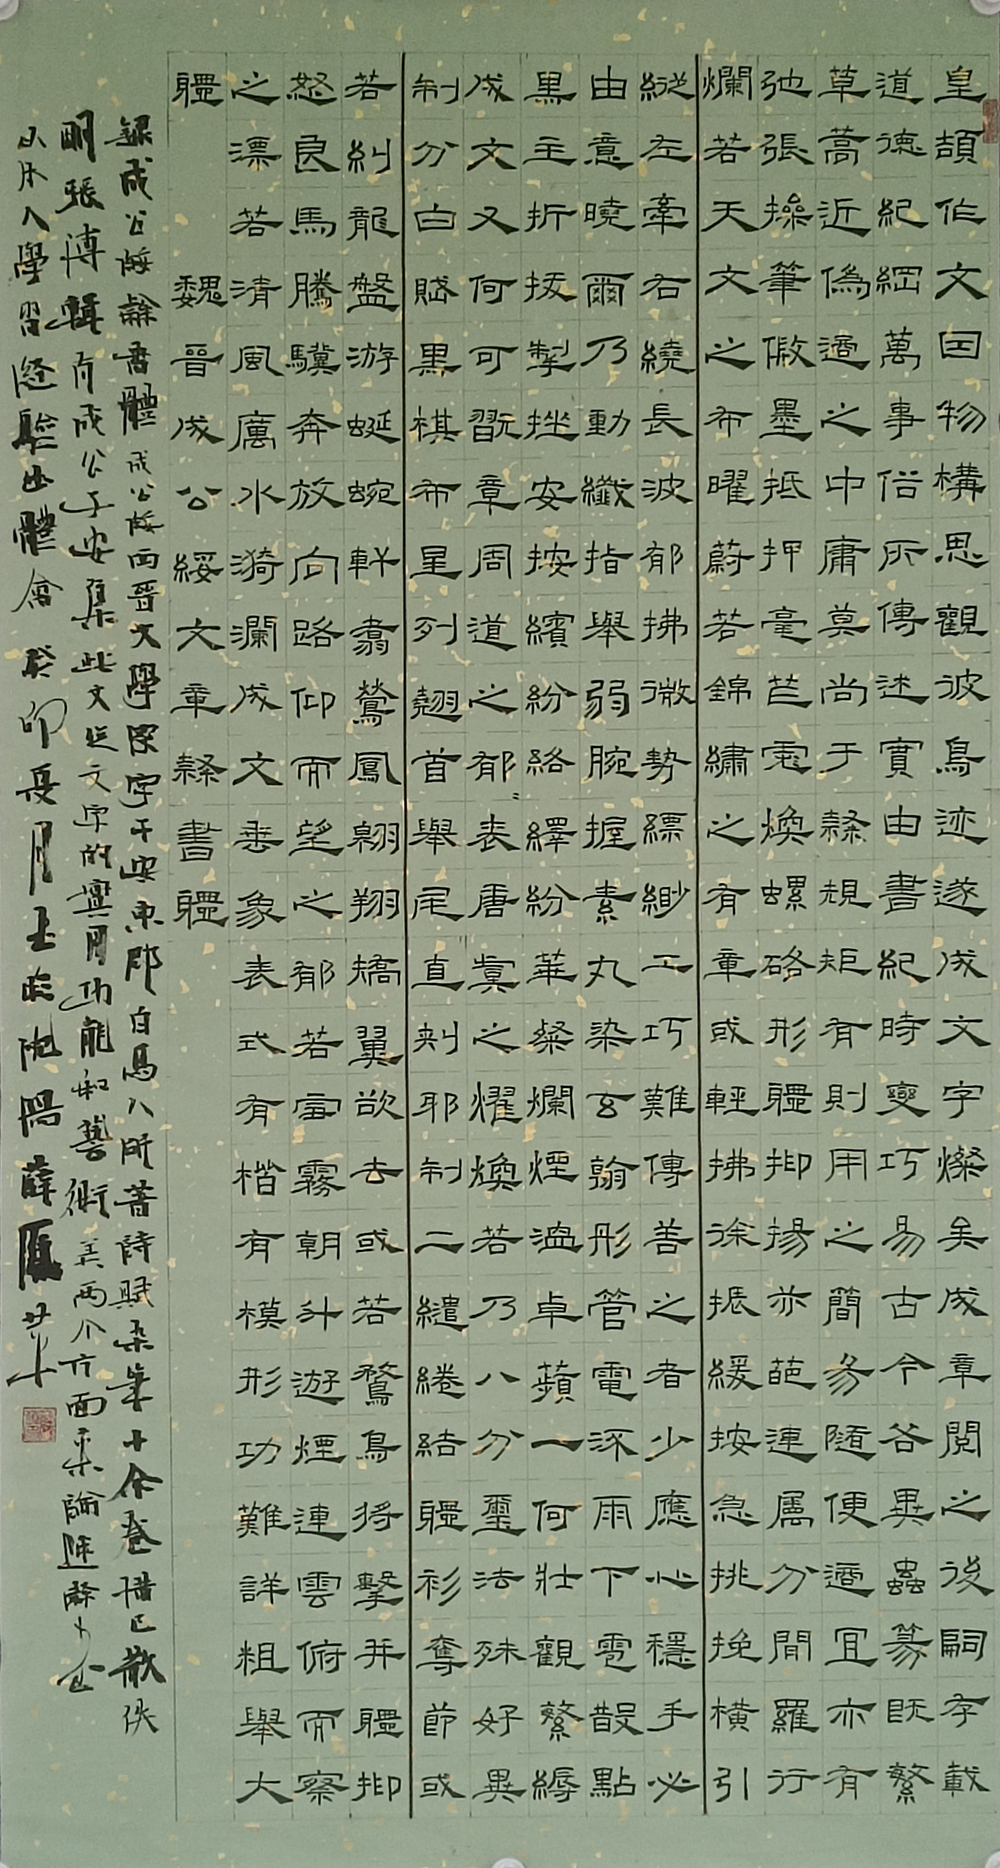 皇頡作文因物構思觀彼鳥迹遂成文字燦矣成章閱之後嗣存載
道德紀綱萬事俗所傳述實由書紀時變巧易古今各異蟲篆既繁
草藁近偽適之中庸莫尚于隸規矩有則用之簡易隨便適宜亦有
弛張操筆假墨抵押毫芒彪煥螺硌形體抑揚亦葩連屬分間羅行
爛若天文之布曜蔚若錦繡之有章或輕拂徐振緩按急挑挽橫引
縱左牽右繞長波郁拂微勢縹緲工巧難傳善之者少應心穩手必
由意曉爾乃動纖指舉弱腕握素丸染玄翰彤管電流雨下雹散點
黑主折拔掣挫安按繽紛絡繹紛華粲爛煙溫卓蘋一何壯觀繁縟
成文又何可翫章周道之郁表唐虞之耀煥若乃八分璽法殊好異
制分白賦黑棋布星列翹首舉尾直刺邪制二繾綣結體衫奪節或
若糾龍盤游蜒蜿軒翥鸞鳳翱翔矯翼欲去或若鷙鳥將擊并體抑
怒良馬騰驥奔放向路仰而望之郁若宵霧朝升遊煙連雲俯而察
之漂若清風厲水漪瀾成文垂象表式有楷有模形功難詳粗舉大
體 魏晉成公綏文章隸書體
錄成公綏隸書體成公綏西晉文學家字子安東郡白馬人所著詩賦雜筆十余卷惜已散佚
明張溥輯有成公子安集此文從文字的實用功能和藝術美兩個方面來論述隸書
以本人學習隨驗出體會癸卯夏月 薛